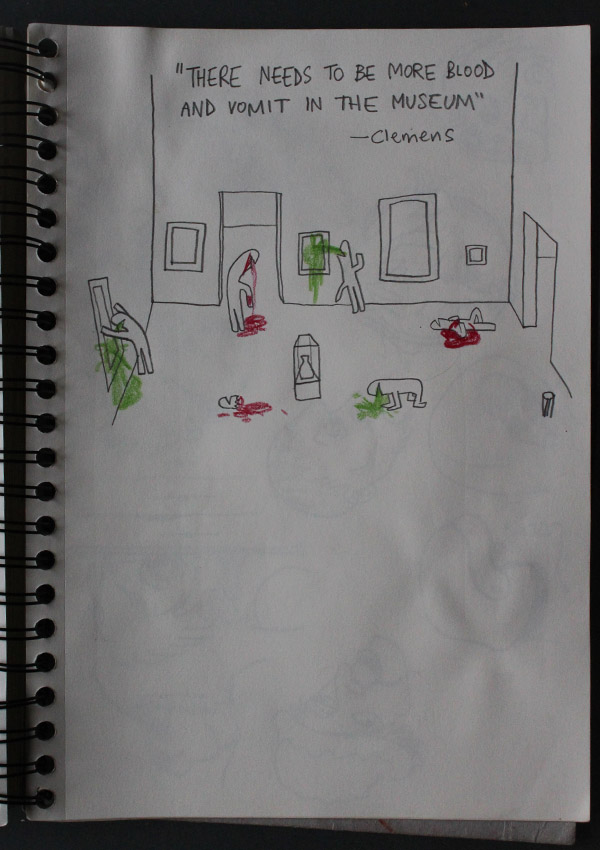 "THERE NEEDS TO BE MORE BLOOD
AND VOMIT IN THE MUSEUM"
—Clemens